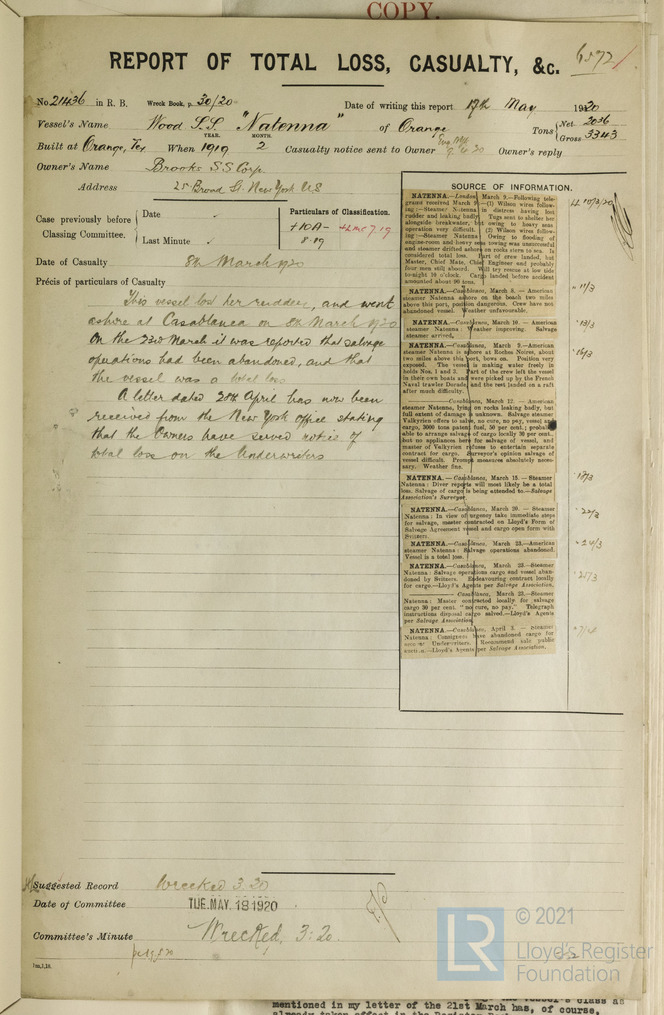 COPY.
REPORT OF TOTAL LOSS, CASUALTY, &c. 6572
No 21436 in R. B. Wreck Book, p. 30/20 Date of writing this report 17th May 1920
Vessel's Name Wood S.S. "Natenna" of Orange Tons Net 2036 Gross 3343
YEAR. MONTH.
Built at Orange, Tex When 1919 2 Casualty notice sent to Owner Owner's reply
Owner's Name Brooks S S Corp.
Address 25 Broad St. New York U S
Case previously before Classing Committee. Date
Last Minute
Particulars of Classification.
+10A- +LMC 7.19
8-19
Date of Casualty 8th March 1920
Précis of particulars of Casualty
This vessel lost her rudder, and went
ashore at Casablanca on 8th March 1920
On the 23rd March it was reported that salvage
operations had been abandoned, and that
the vessel was a total loss
A letter dated 20th April has now been
received from the New York office stating
that the Owners have served notice of
total loss on the Underwriters
SOURCE OF INFORMATION.
NATENNA.—London, March 9.—Following tele-
grams received March 9:—(1) Wilson wires follow-
ing:—Steamer Natenna distress having lost
rudder and leaking badly. Tugs sent to shelter her
alongside breakwater, but owing to heavy seas
operation very difficult. (2) Wilson wires follow-
ing:—Steamer Natenna Owing to flooding of
engine-room and heavy seas towing was unsuccessful
and steamer drifted ashore on rocks stern to sea. Is
considered total loss. Part of crew landed, but
Master, Chief Mate, Chief Engineer and probably
four men still aboard. Will try rescue at low tide
to-night 10 o'clock. Cargo landed before accident
amounted about 90 tons.
LL 10/3/20
NATENNA.—Casablanca, March 8. — American
steamer Natenna ashore on the beach two miles
above this port, position dangerous. Crew have not
abandoned vessel. Weather unfavourable.
" 11/3
NATENNA.—Casablanca, March 10. — American
steamer Natenna: Weather improving. Salvage
steamer arrived.
" 13/3
NATENNA.—Casablanca, March 9.—American
steamer Natenna is ashore at Roches Noires, about
two miles above this port, bows on. Position very
exposed. The vessel is making water freely in
holds Nos. 1 and 3. Part of the crew left the vessel
in their own boats and were picked up by the French
Naval trawler Dorade, and the rest landed on a raft
after much difficulty.
" 16/3
——— Casablanca, March 12. — American
steamer Natenna, lying on rocks leaking badly, but
full extent of damage is unknown. Salvage steamer
Valkyrien offers to salve, no cure, no pay, vessel and
cargo, 3000 tons patent fuel, 50 per cent; probably
able to arrange salvage of cargo locally 30 per cent.,
but no appliances here for salvage of vessel, and
master of Valkyrien refuses to entertain separate
contract for cargo. Surveyor's opinion salvage of
vessel difficult. Prompt measures absolutely neces-
sary. Weather fine.
NATENNA.—Casablanca, March 15. — Steamer
Natenna: Diver reports will most likely be a total
loss. Salvage of cargo is being attended to.—Salvage
Association's Surveyor.
" 18/3
NATENNA.—Casablanca, March 20. — Steamer
Natenna: In view of urgency take immediate steps
for salvage, master contracted on Lloyd's Form of
Salvage Agreement vessel and cargo open form with
Svitzers.
" 22/3
NATENNA.—Casablanca, March 23.—American
steamer Natenna: Salvage operations abandoned.
Vessel is a total loss.
" 24/3
NATENNA.—Casablanca, March 23.—Steamer
Natenna: Salvage operations cargo and vessel aban-
doned by Svitzers. Endeavouring contract locally
for cargo.—Lloyd's Agents per Salvage Association.
——— Casablanca, March 23.—Steamer
Natenna: Master contracted locally for salvage
cargo 30 per cent. "no cure, no pay." Telegraph
instructions disposal cargo salved.—Lloyd's Agents
per Salvage Association.
NATENNA.—Casablanca, April 3. — Steamer
Natenna: Consignees have abandoned cargo for
Underwriters. Recommend sale public
auction.—Lloyd's Agents per Salvage Association.
Suggested Record Wrecked 3.20
Date of Committee TUE. MAY. 18 1920
Committee's Minute Wrecked, 3.20.
1m,1,18.
LR © 2021
Lloyd's Register
Foundation
mentioned in my letter of the 21st March has, of course,